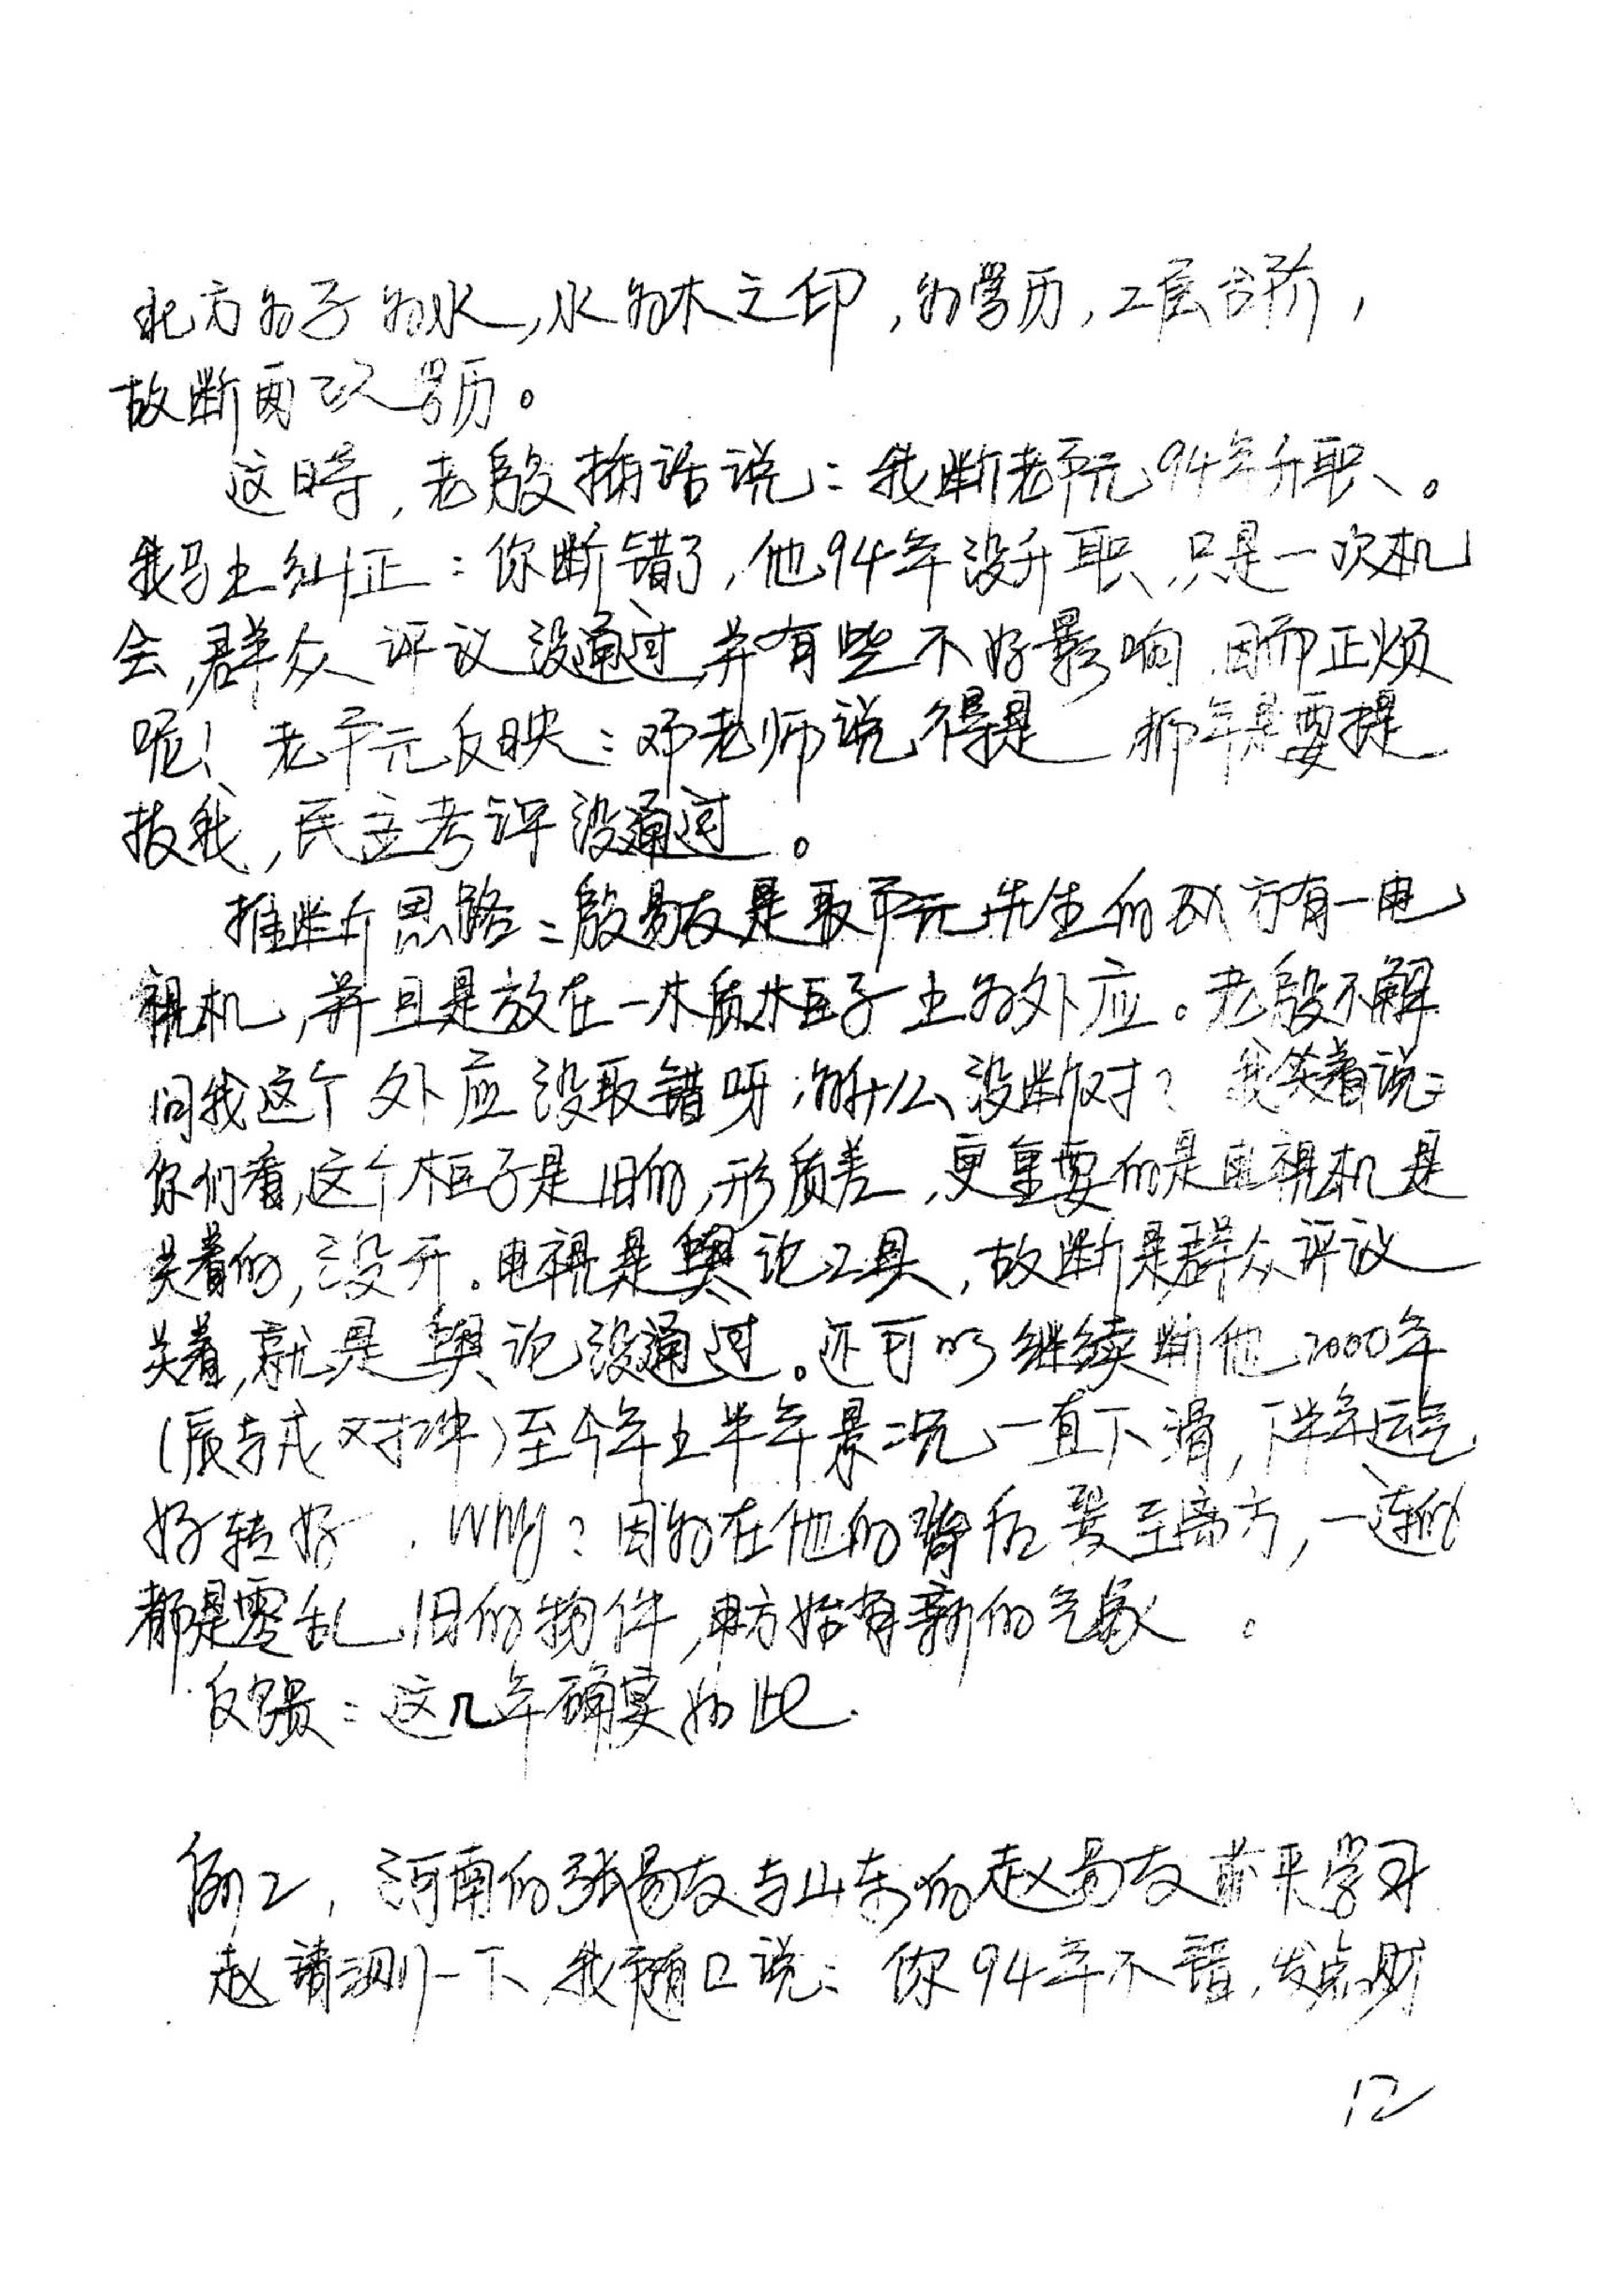 北方为子为水,水为木之印,为学历,2层台阶,
故断两次学历。
这时,老殷插话说:我断老平元94年升职。
我马上纠正:你断错了,他94年没升职,只是一次机
会,群众评议没通过,并有些不好影响,因而正烦
呢!老平元反映:邓老师说得是 那年是要提
拔我,民主考评没通过。
推断思路:殷易友是取平元先生的戌方有一电
视机,并且是放在一木质柜子上为外应。老殷不解
问我这个外应没取错呀,为什么没断对?我笑着说:
你们看,这个柜子是旧的,形质差,更重要的是电视机是
关着的,没开。电视是舆论工具,故断是群众评议
关着,就是舆论没通过。还可以继续断他2000年
(辰与戌对冲)至今年上半年景况一直下滑,下半年运气
好转好.Why?因为在他的背后 至 方,一连的
都是零乱、旧的物件,申方始有新的气象。
反馈:这几年确实如此.
例2,河南的张易友与山东的赵易友前来学习
赵请测一下,我随口说:你94年不错,发点财
12